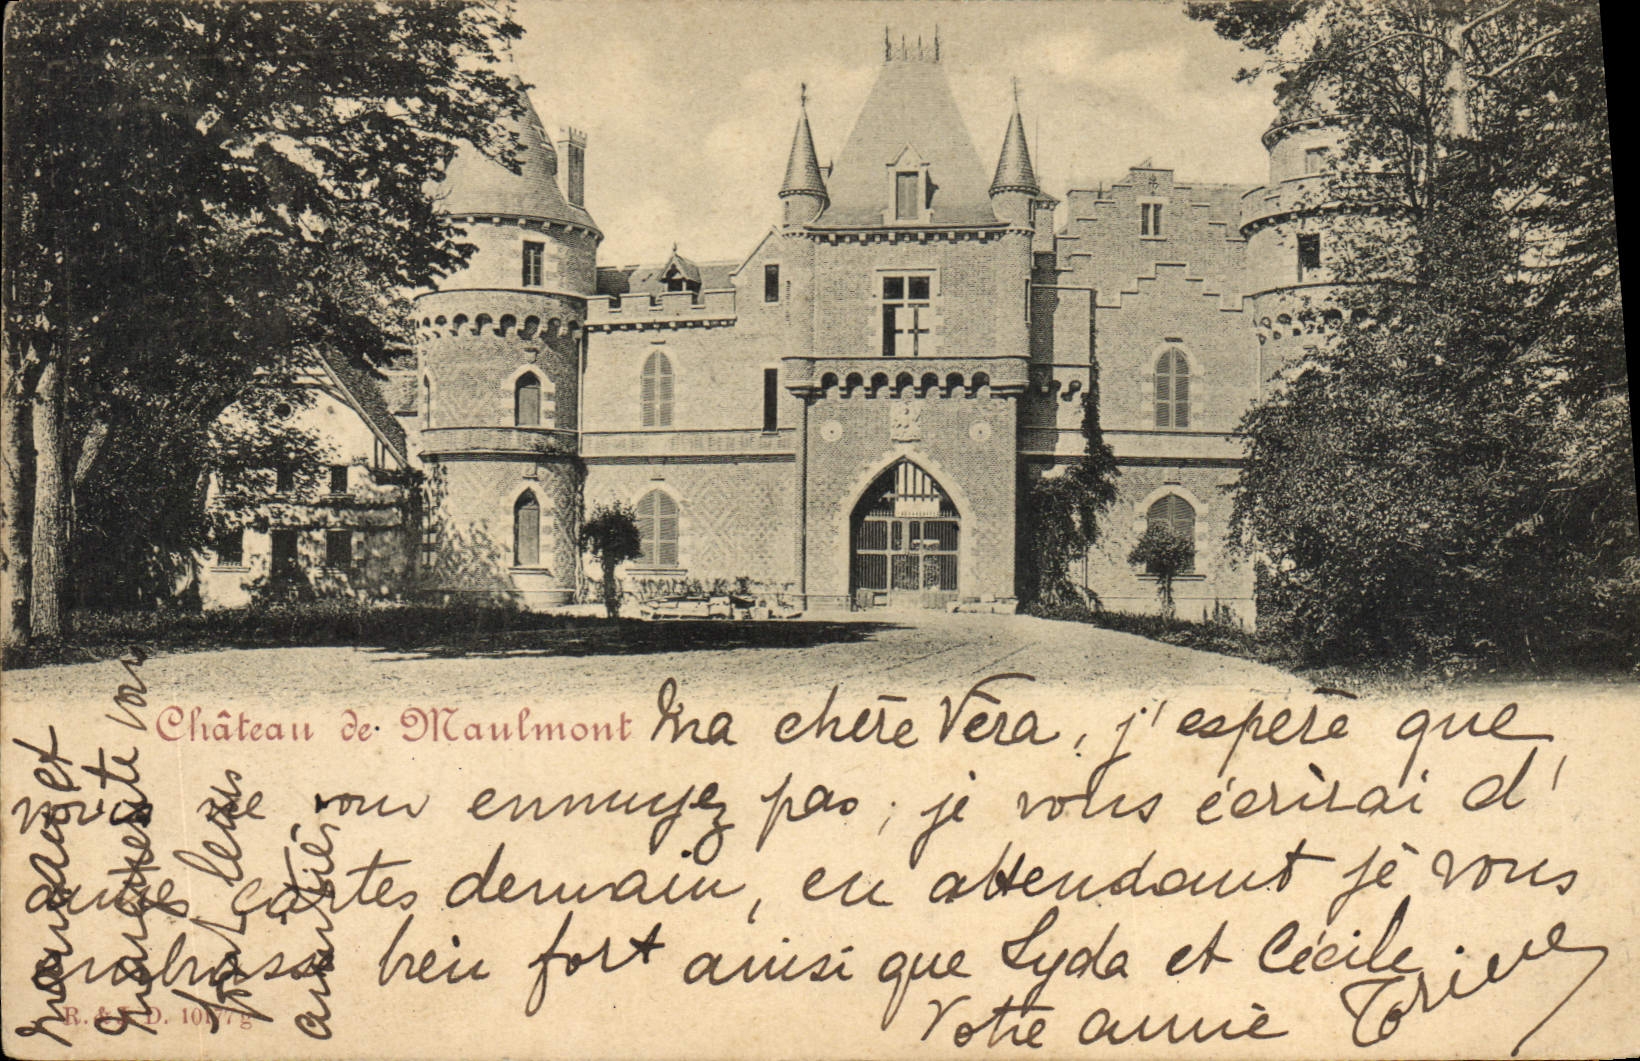 Château de Maulmont Ma chère Véra, j'espère que
vous ne vous ennuyez pas ; je vous écrirai d'
autres cartes demain, en attendant je vous
embrasse bien fort ainsi que Lyda et Cécile.
Votre amie
Maman et
Marguerite vous
font leurs
amitiés
R. & J. D. 10177 g